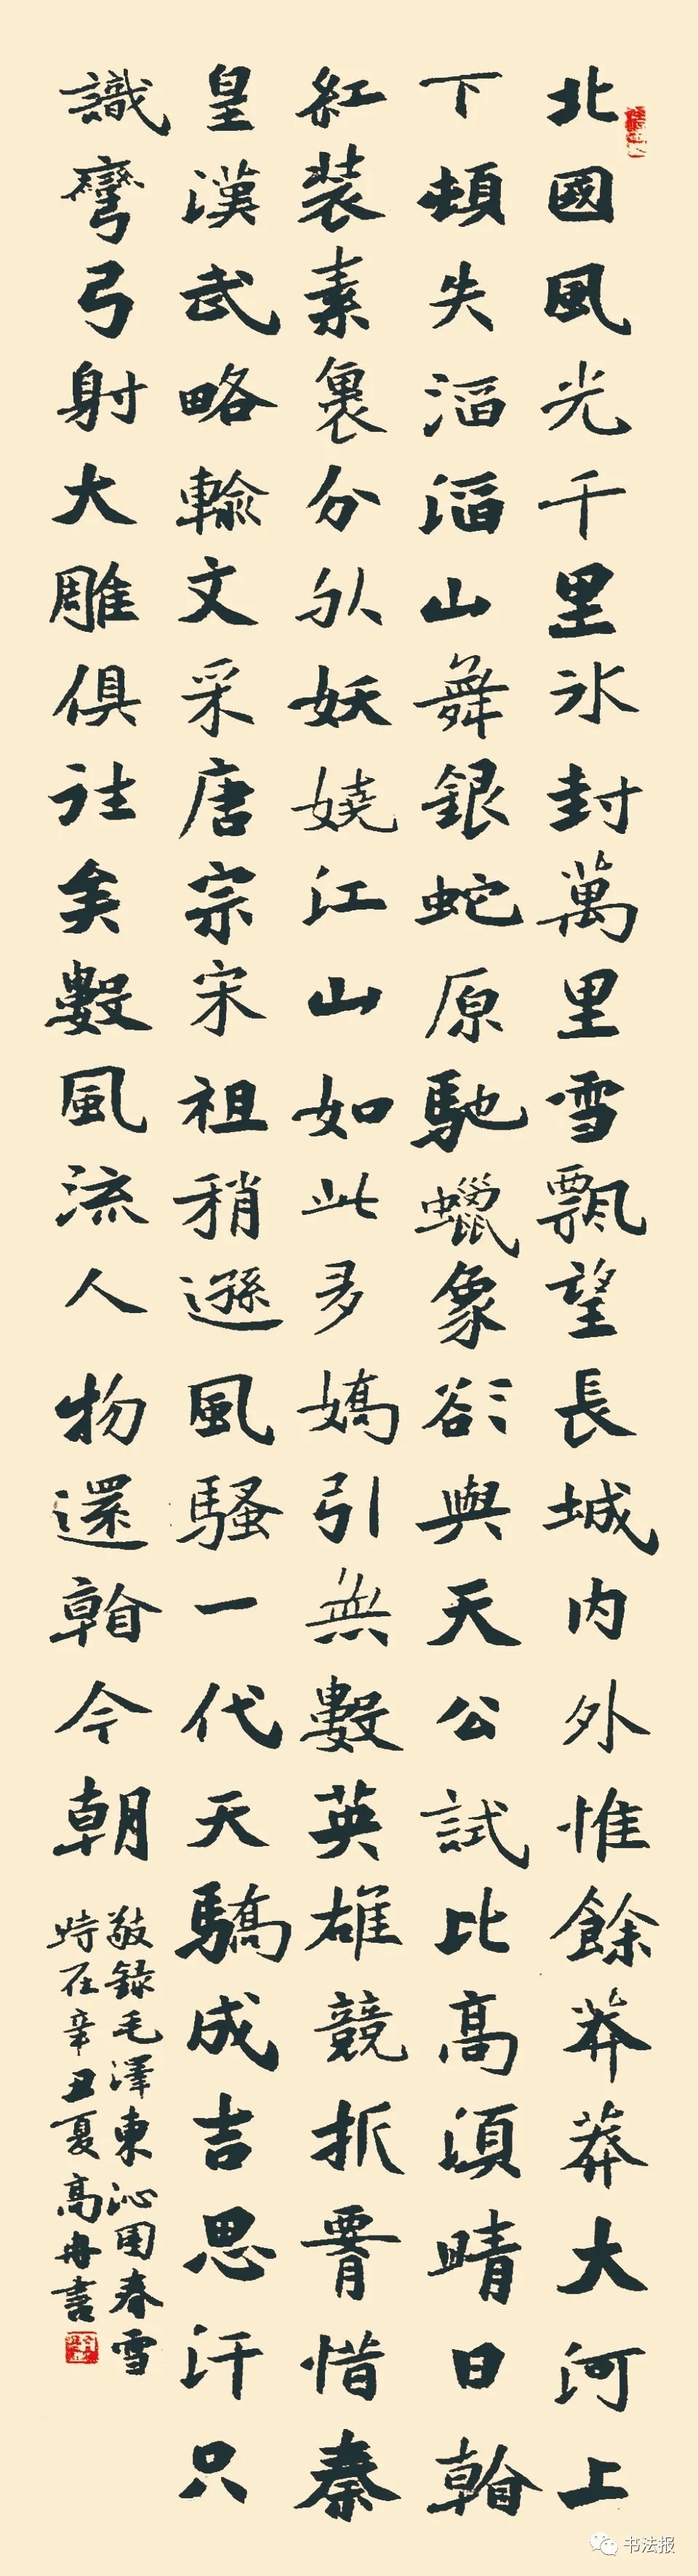 北國風光千里冰封萬里雪飄望長城内外惟餘莽莽大河上
下頓失滔滔山舞銀蛇原馳蠟象欲與天公試比高須晴日看
紅装素裹分外妖嬈江山如此多嬌引無數英雄競折腰惜秦
皇漢武略輸文采唐宗宋祖稍遜風騷一代天驕成吉思汗只
識彎弓射大雕俱往矣數風流人物還看今朝
敬録毛澤東沁園春雪
時在辛丑夏高冉書
书法报